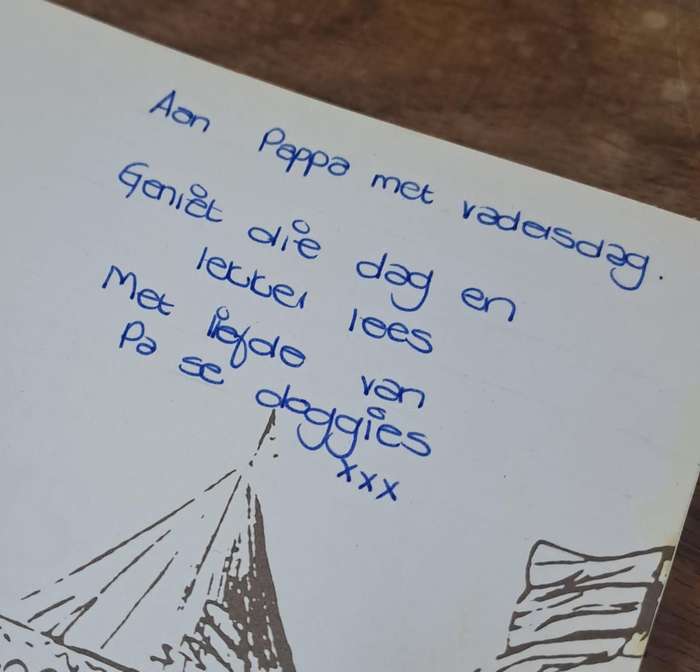 Aan Pappa met vadersdag.
Geniet die dag en
lekker lees
Met liefde van
Pa se doggies
xxx